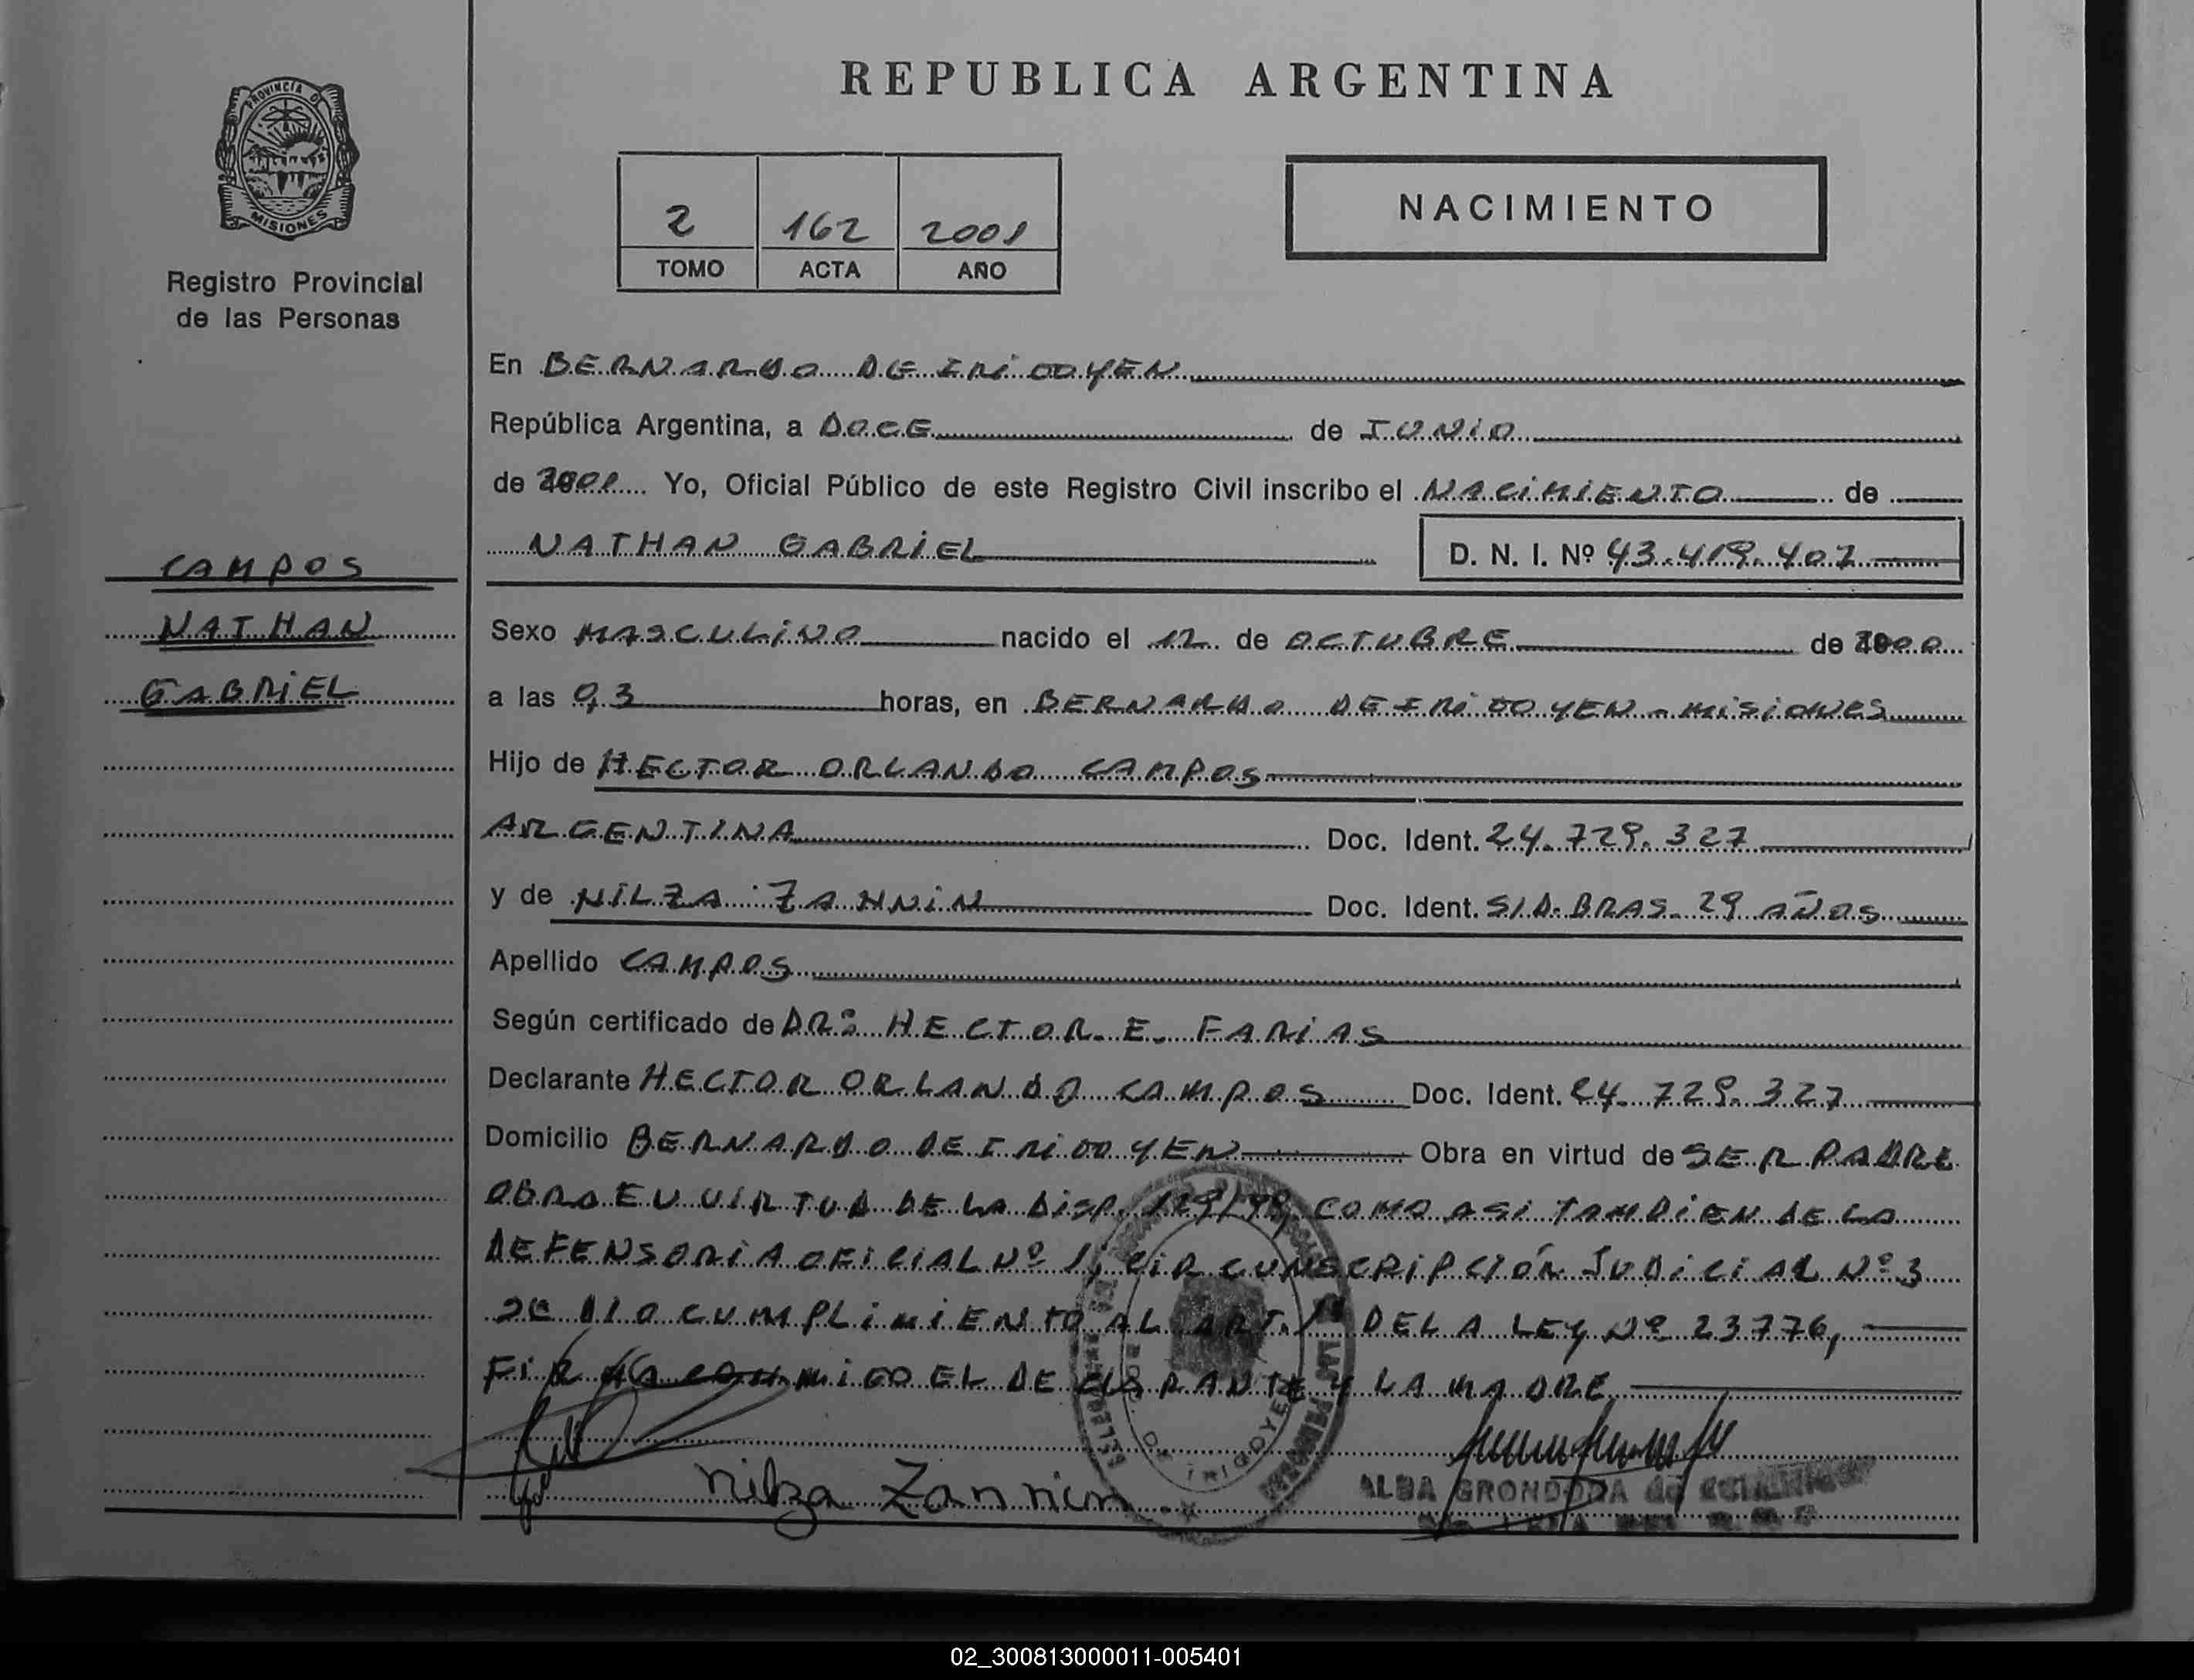 REPUBLICA ARGENTINA
PROVINCIA DE
MISIONES
Registro Provincial
de las Personas
2 162 2001
TOMO ACTA AÑO
NACIMIENTO
En BERNARDO DE IRIGOYEN
República Argentina, a DOCE de JUNIO
de 2001 Yo, Oficial Público de este Registro Civil inscribo el NACIMIENTO de
NATHAN GABRIEL D. N. I. Nº 43.419.407
CAMPOS
NATHAN
GABRIEL
Sexo MASCULINO nacido el 12 de OCTUBRE de 2000
a las 9,3 horas, en BERNARDO DE IRIGOYEN - MISIONES
Hijo de HECTOR ORLANDO CAMPOS
ARGENTINA Doc. Ident. 24.729.327
y de NILZA ZANNIN Doc. Ident. S/D. BRAS. 29 AÑOS
Apellido CAMPOS
Según certificado de DR: HECTOR E. FARIAS
Declarante HECTOR ORLANDO CAMPOS Doc. Ident. 24.729.327
Domicilio BERNARDO DE IRIGOYEN Obra en virtud de SER PADRE
OBRA EN VIRTUD DE LA DISP. 129/98, COMO ASI TAMBIEN DE LA
DEFENSORIA OFICIAL Nº 1, CIRCUNSCRIPCIÓN JUDICIAL Nº 3
SE DIO CUMPLIMIENTO AL ART. DE LA LEY Nº 23776,
FIRMA CONMIGO EL DECLARANTE Y LA MADRE
Nilza Zannin
DE IRIGOYEN
ALBA GRONDONA de
02_300813000011-005401